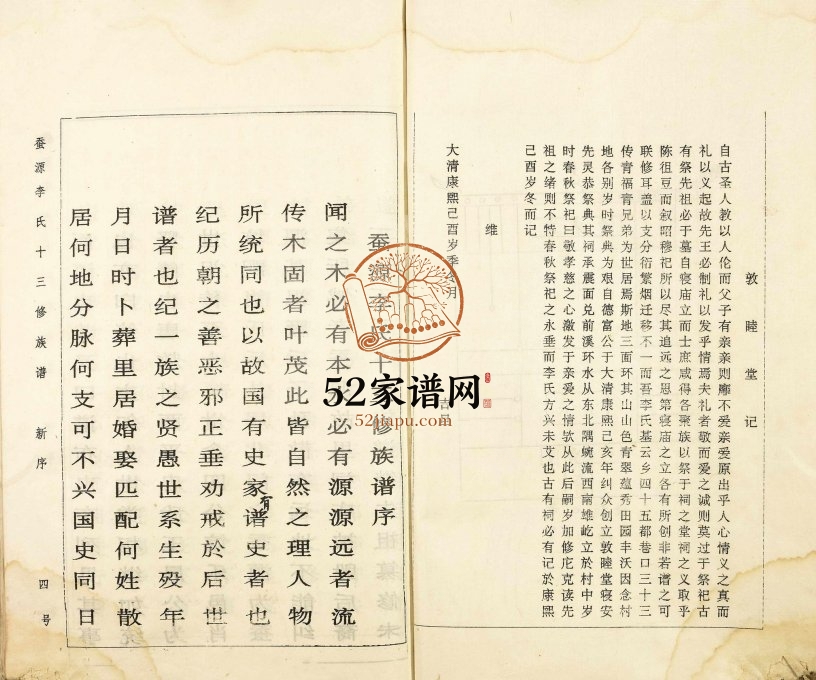 敦睦堂记
自古圣人教以人伦而父子有亲亲则靡不爱亲爱原出乎人心情义之真而
礼以义起故先王必制礼以发乎情焉夫礼者敬而爱之诚则莫过于祭祀古
有祭先祖必于墓自寝庙立而士庶咸得各聚族以祭于祠之堂祠之义取乎
陈徂豆而叙昭穆祀所以尽其追远之思第寝庙之立各有所创非若谱之可
联修耳盖以支分衍繁烟迁移不一而吾李氏基云乡四十五都巷口三十三
传青福青兄弟为世居焉斯地三面环其山山色青翠蕴秀田园丰沃因念村
地各别岁时祭典为艰自德富公于大清康熙己亥年纠众创立敦睦堂寝安
先灵恭祭典其祠承震面兑前溪环水从东北隅蜿流西南雄屹立於村中岁
时春秋祭祀曰敬孝慈之心激发于亲爱之情欤从此后嗣岁加修庀克读先
祖之绪则不特春秋祭祀之永垂而李氏方兴未艾也古有祠必有记於康熙
己酉岁冬而记
维
大清康熙己酉岁季冬月
古吕
蚕源李氏十三修族谱序
闻之木必有本水必有源源远者流
传木固者叶茂此皆自然之理人物
所统同也以故国有史家有谱史者也
纪历朝之善恶邪正垂劝戒於后世
谱者也纪一族之贤愚世系生殁年
月日时卜葬里居婚娶匹配何姓散
居何地分脉何支可不兴国史同日
蚕源李氏十三修族谱 新序 四号
52家谱网
52jiapu.com